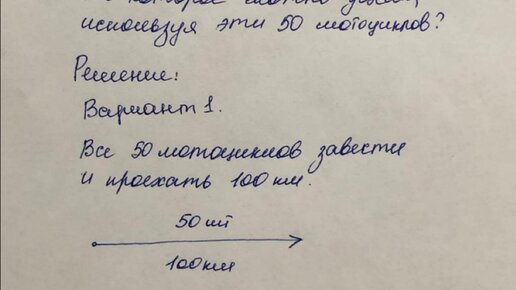 которое можно уехать,
используя эти 50 мотоциклов?
Решение:
Вариант 1.
Все 50 мотоциклов завести
и проехать 100 км.
50 шт
100 км